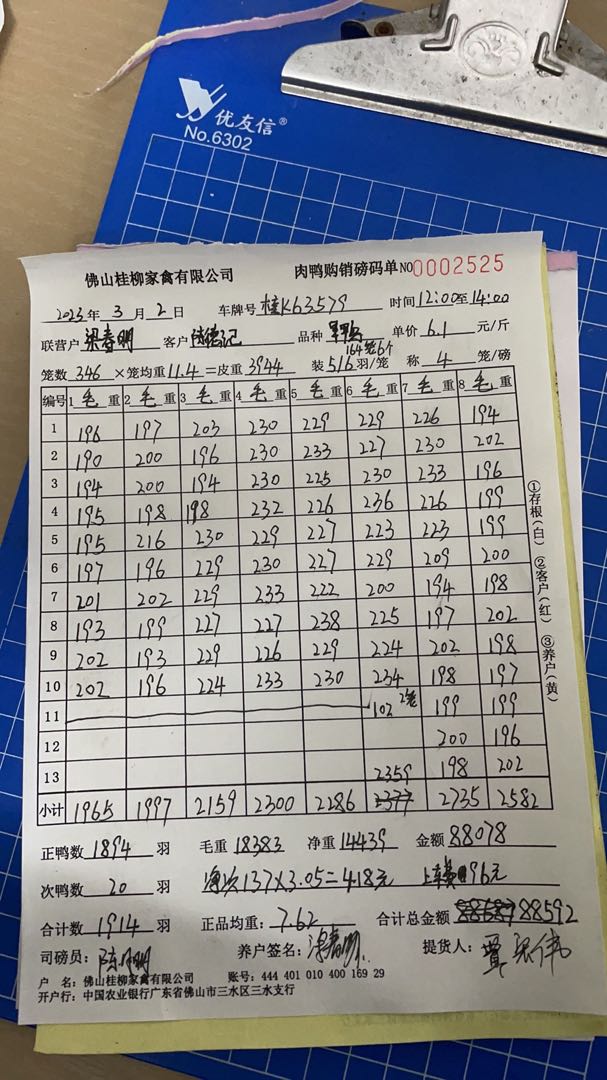 优友信®
No.6302
佛山桂柳家禽有限公司 肉鸭购销磅码单 NO 0002525
2023年 3月 2日 车牌号 桂K63579 时间 12:00至14:00
联营户 梁春明 客户 德记 品种 单价 6.1 元/斤
164笼6个
笼数 346 ×笼均重 11.4 =皮重 3944 装 5/6 羽/笼 称 4 笼/磅
编号 1 毛 重 2 毛 重 3 毛 重 4 毛 重 5 毛 重 6 毛 重 7 毛 重 8 毛 重
1 196 197 203 230 229 229 226 194
2 190 200 196 230 233 227 230 202
3 194 200 194 230 225 230 233 196
4 195 198 198 232 226 236 226 199
5 195 216 230 229 227 223 223 199
6 197 196 229 230 227 229 209 200
7 201 202 229 233 222 200 194 198
8 193 199 227 227 238 225 197 202
9 202 193 229 226 229 224 202 198
10 202 196 224 233 230 234 198 197
11 102 2笼 199 199
12 200 196
13 2359 198 202
小计 1965 1997 2159 2300 2286 2377 2735 2582
正鸭数 1894 羽 毛重 18383 净重 14439 金额 88078
次鸭数 20 羽 137×3.05=418元 上车费 96元
合计数 1914 羽 正品均重: 7.62 合计总金额 88592
司磅员: 陈 明 养户签名: 梁春明 提货人: 伟
户 名: 佛山桂柳家禽有限公司 账号: 444 401 010 400 169 29
开户行: 中国农业银行广东省佛山市三水区三水支行
①存根(白) ②客户(红) ③养户(黄)